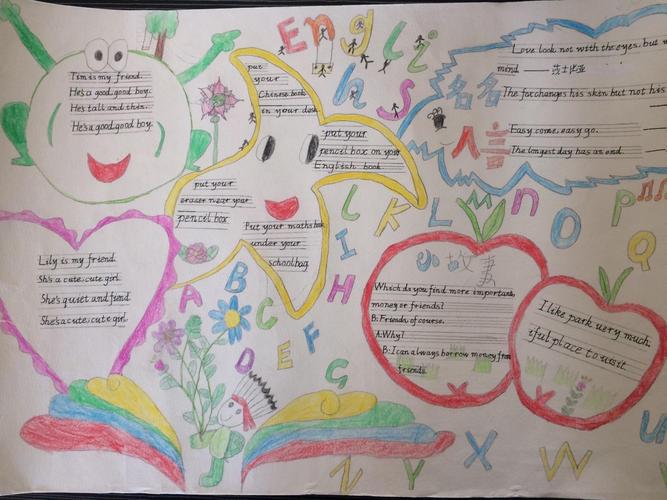 English
Tim is my friend.
He's a good, good boy.
He's tall and thin.
He's a good, good boy.
put
your
Chinese book
in your desk
put your
pencil box on your
English book
put your
eraser near your
pencil box
Put your maths book
under your
schoolbag
名名
人言
Love look not with the eyes, but w
mind — 莎士比亚
The fox changes his skin but not his
Easy come, easy go.
The longest day has an end.
Lily is my friend
She's a cute, cute girl
She's quiet and
She's a cute, cute girl
小故事
Which do you find more important,
money or friends?
B: Friends of course.
A: Why?
B: I can always borrow money from
friends.
I like park very much.
iful place to visit
A B C D E F G
H I J K L M N O P Q
U W X Y Z